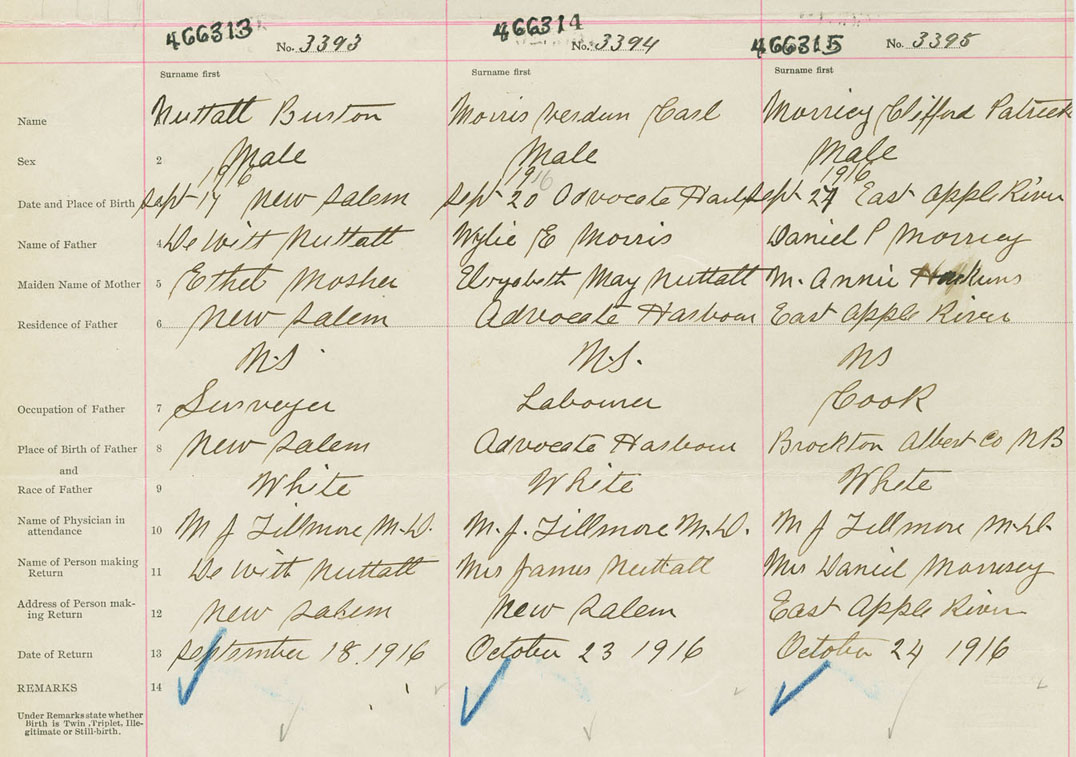 466313 No. 3393 466314 No. 3394 466315 No. 3395
Surname first Surname first Surname first
Name Nuttall Burton Morris Verdun Earl Morricy Clifford Patrick
Sex 2 Male Male Male
1916 1916 1916
Date and Place of Birth Sept 17 New Salem Sept 20 Advocate Harb Sept 27 East Apple River
Name of Father 4 De Witt Nuttall Wylie E Morris Daniel P Morricy
Maiden Name of Mother 5 Ethel Mosher May Nuttall M. Annie
Residence of Father 6 New Salem Advocate Harbour East Apple River
N.S. N.S. NS
Occupation of Father 7 Surveyer Labourer Cook
Place of Birth of Father 8 New Salem Advocate Harbour Brockton Albert Co NB
and
Race of Father 9 White White White
Name of Physician in
attendance 10 M J Fillmore M.D. M. J. Fillmore M.D. M J Fillmore M.D.
Name of Person making
Return 11 De Witt Nuttall Mrs James Nuttall Mrs Daniel Morrisey
Address of Person mak-
ing Return 12 New Salem New Salem East Apple River
Date of Return 13 September 18, 1916 October 23 1916 October 24 1916
REMARKS 14
Under Remarks state whether
Birth is Twin, Triplet, Ille-
gitimate or Still-birth.